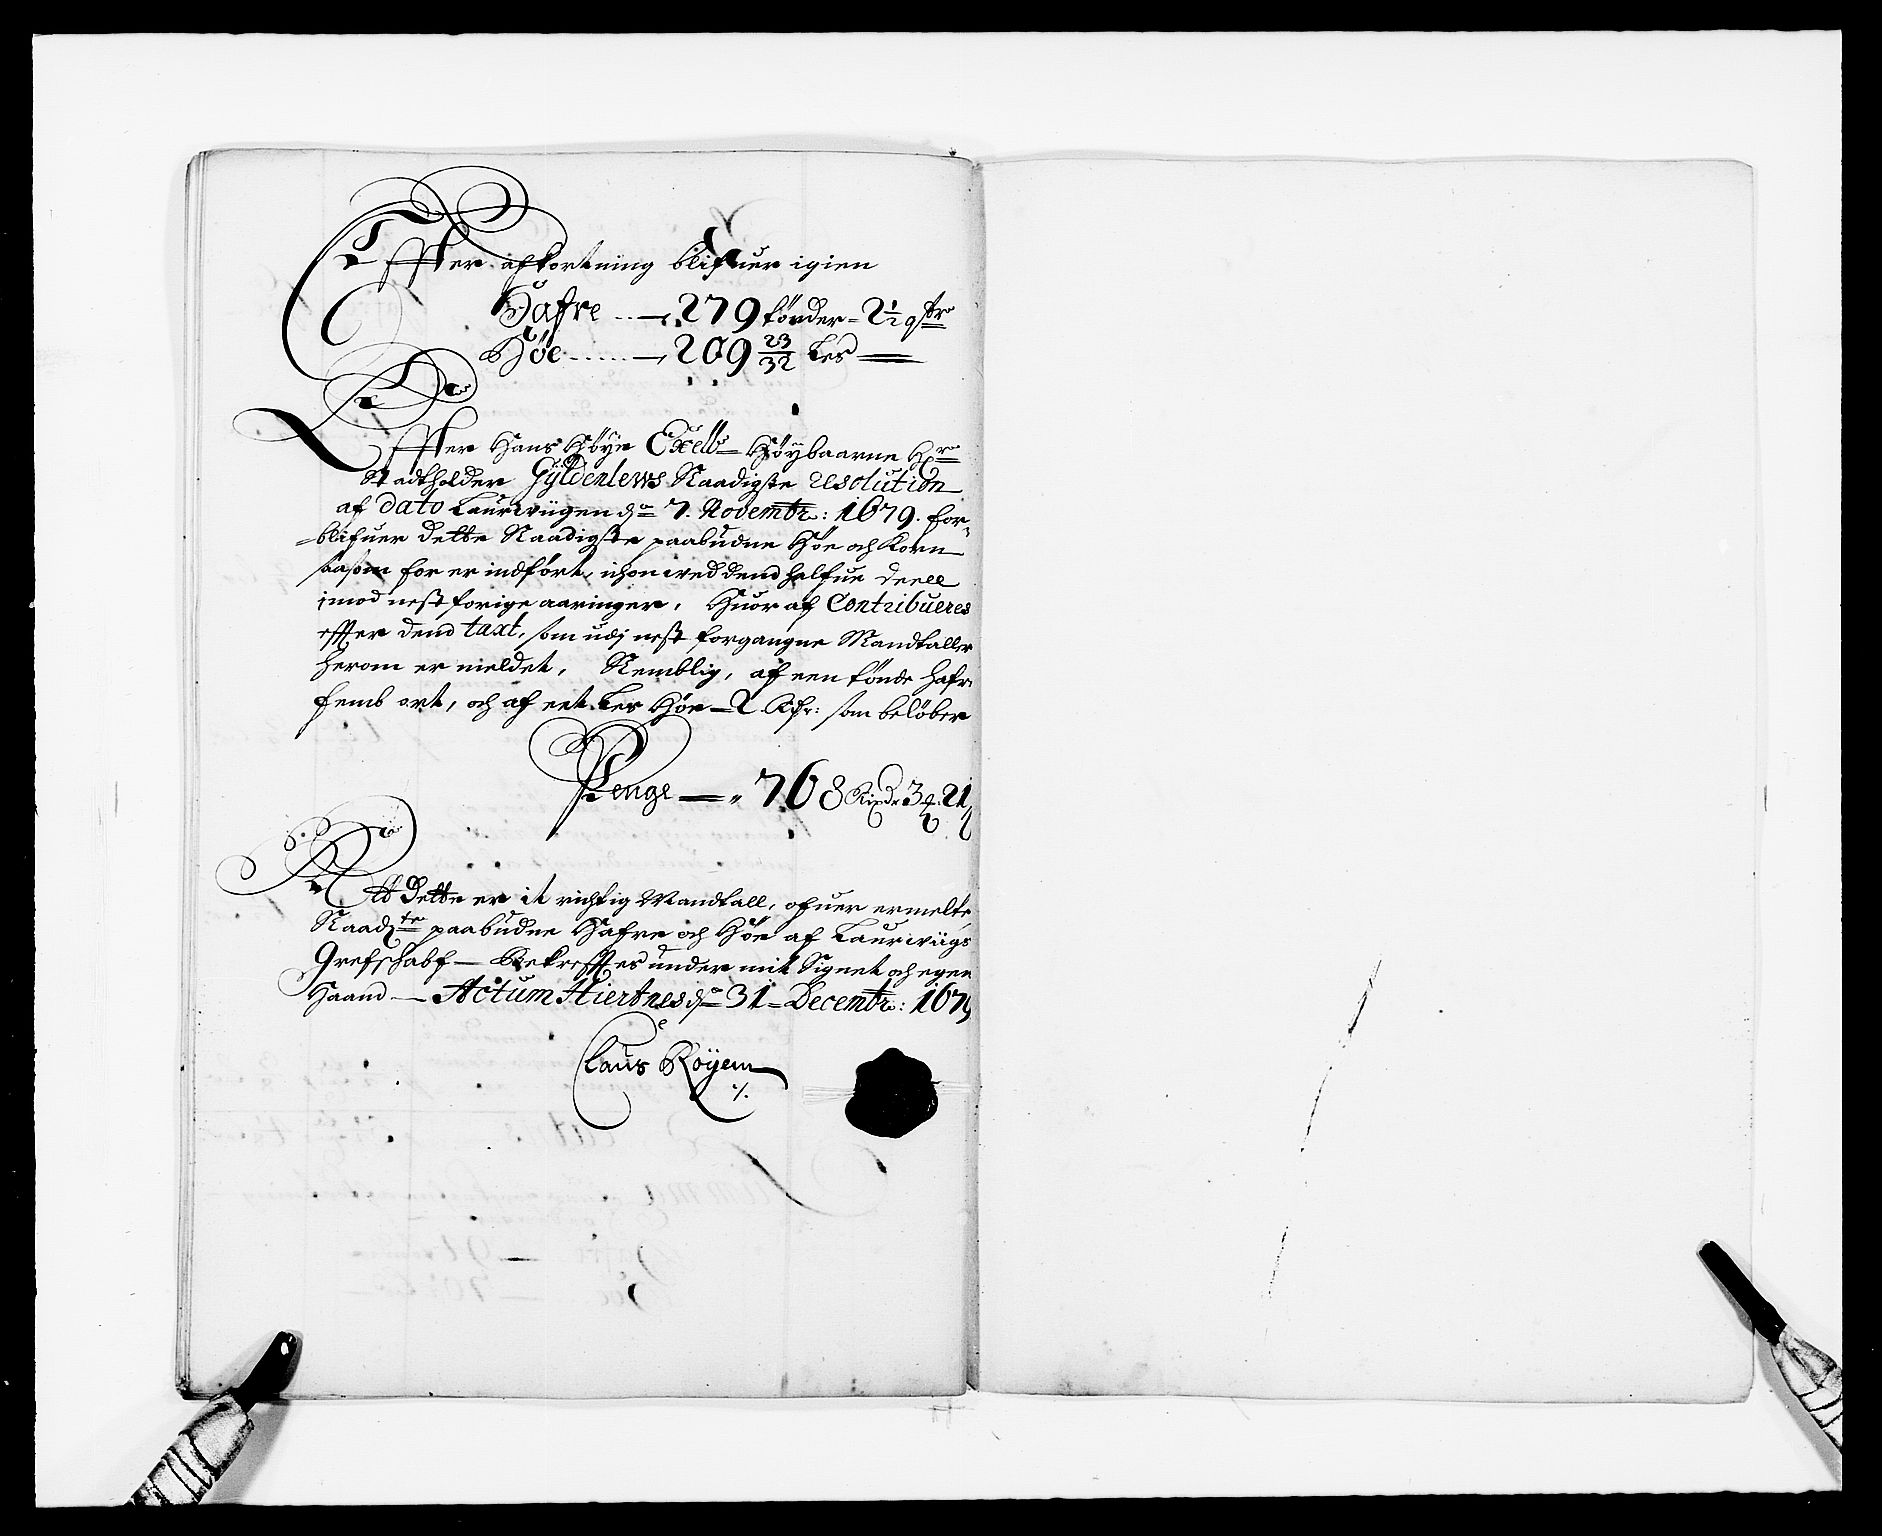 Effter afkortning blifuer igien
Hafre ... 279 tönder = 2½ qtr
Höe ...... 209 23/32 Les
Effter Hans Höye Excell: Höybaarne Hr
Stadtholder Gÿldenlews Naadigste resolution
af dato Laurwiigen dn 7. Novembr: 1679. for-
=blifuer dette Naadigste paabudne Höe och Korn
saasom for er indfört, ichon wed dend halfue deell
imod nest forige aaringer, Huor af Contribueres
effter dend taxt, som udj nest forgangne Mandtaller
herom er meldet, Nemblig, af een tönde hafre
femb ort, och af eet Les Höe — 2 Rdr: som belöber
Penge — 768 Rixdr 3 21
Att Dette er it richtig Mandtall, ofuer ermelte
Naadte paabudne Hafre och Höe af Laurwiigs
Grefschabf — Bekreffter under mit Signet och egen
Haand — Actum Hiertnes dn 31 = Decembr: 1679
Claus Röyem